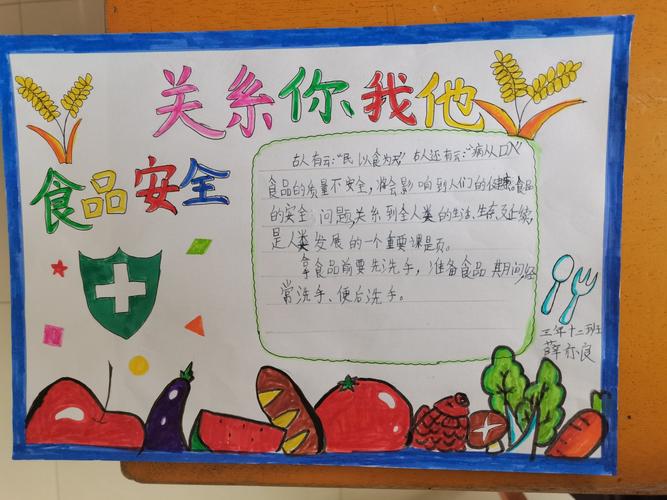 关系你我他
食品安全
古人有云:"民以食为天"古人还有云:"病从口入"
食品的质量不安全,将会影响到人们的健康。食品
的安全问题,关系到全人类的生活、生存及延续,
是人类发展的一个重要课是页。
拿食品前要先洗手,准备食品期间,经
常洗手、便后洗手。
三年十二班
薛亦良